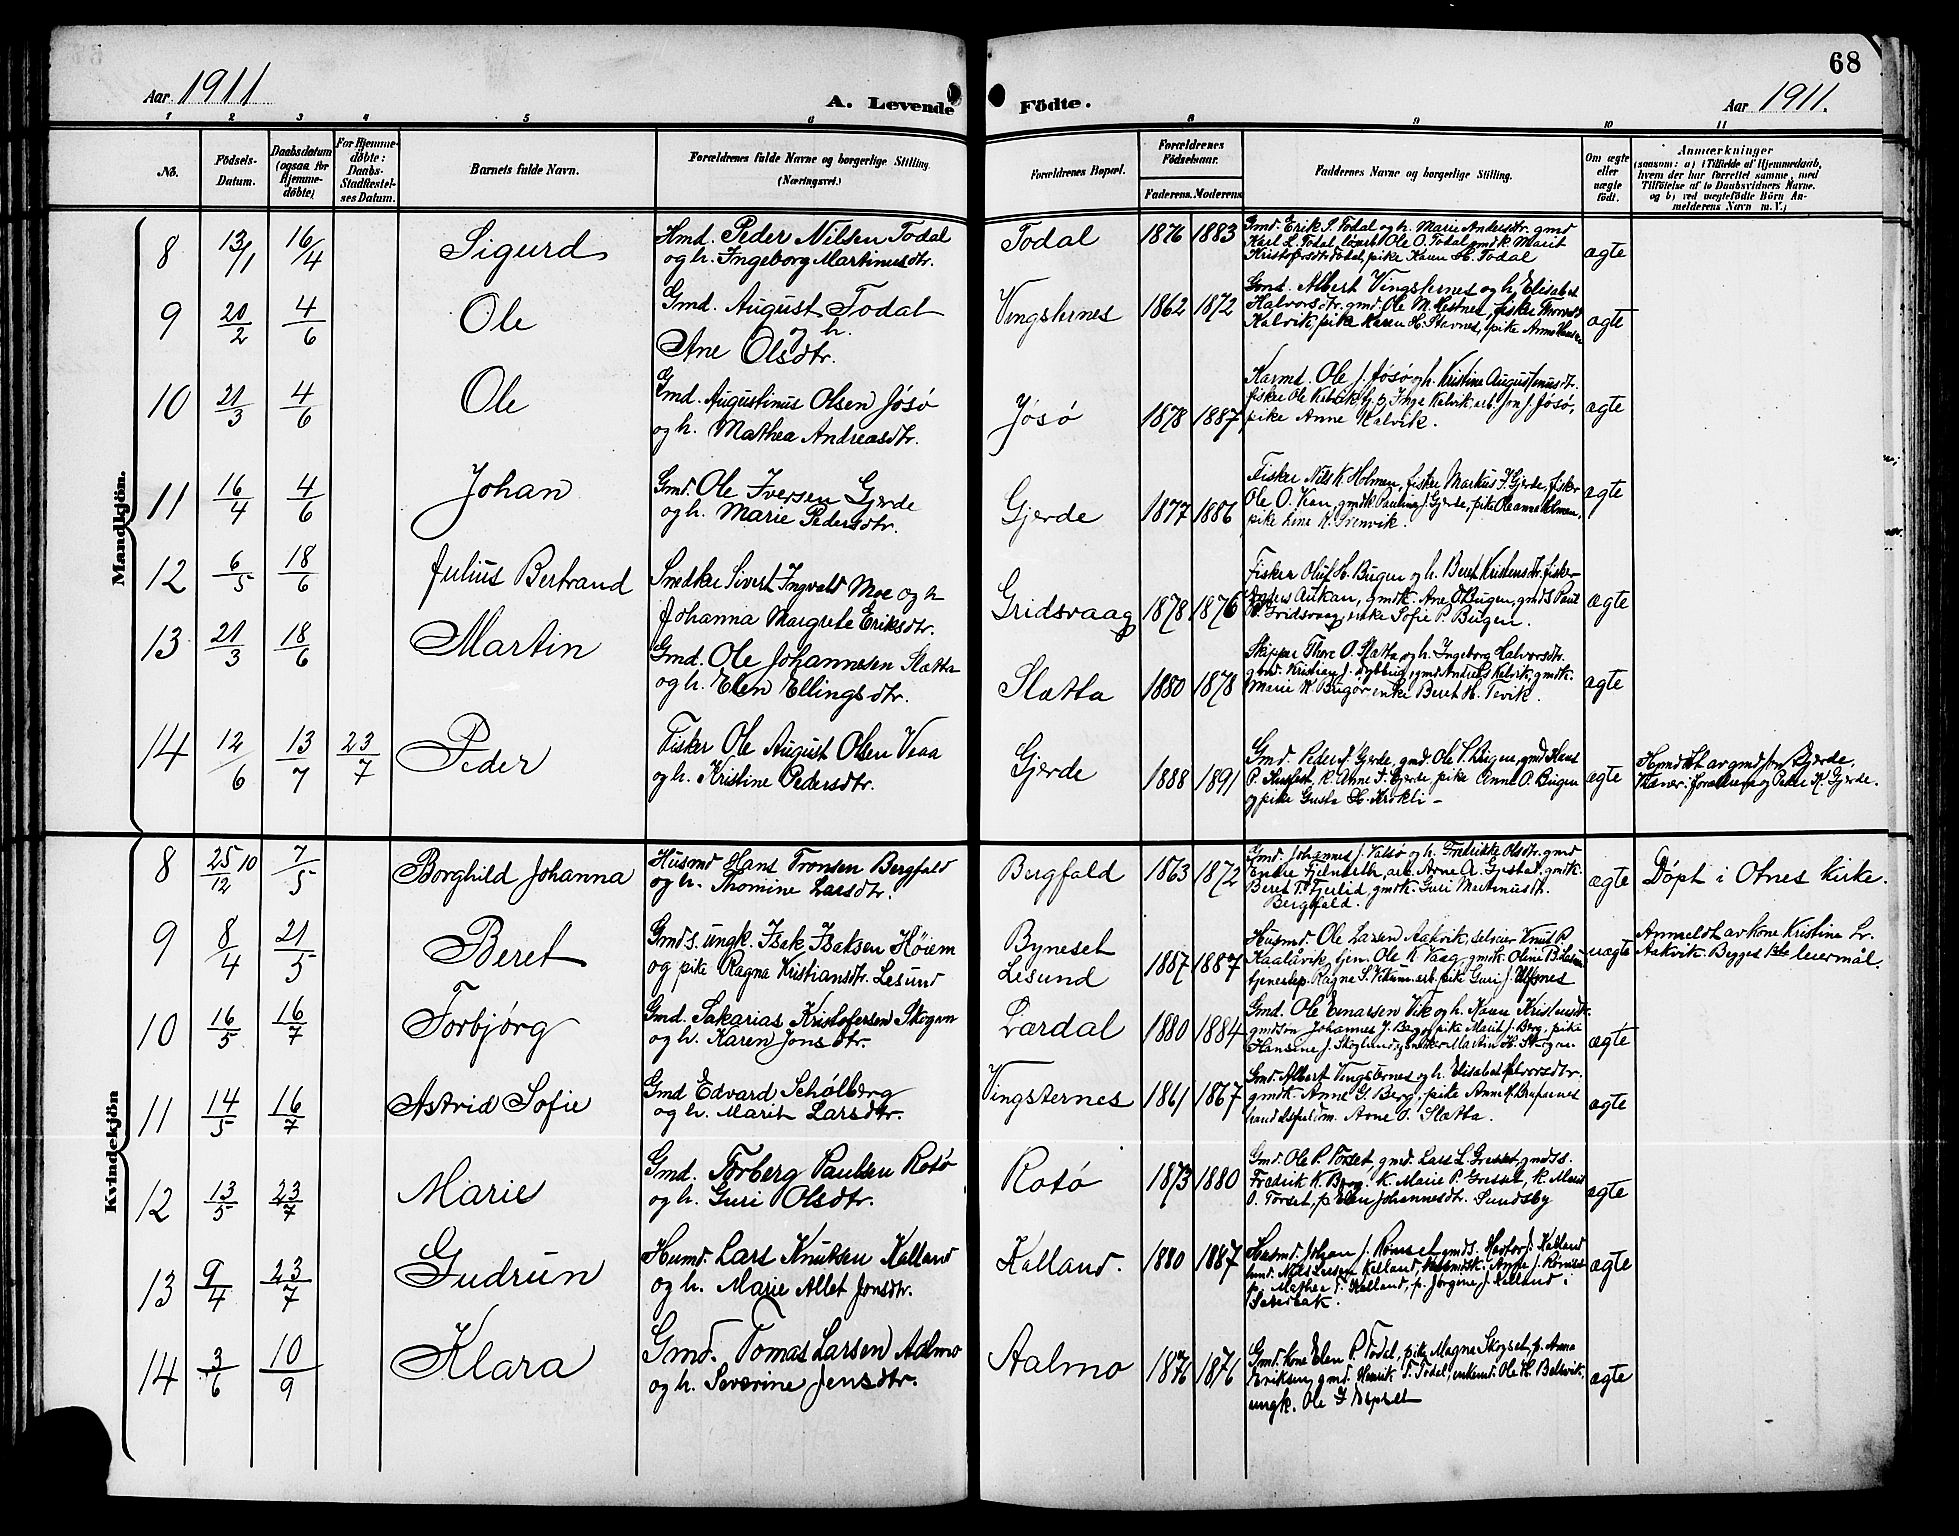 68
Aar 1911
A. Levende Födte.
Aar 1911.
1 2 3 4 5 6 8 9 10 11
No.
Födsels-
Datum.
Daabsdatum
(ogsaa for
Hjemme-
döbte)
For Hjemme-
döbte:
Daabs-
Stadfæstel-
ses Datum.
Barnets fulde Navn.
Forældrenes fulde Navne og borgerlige Stilling.
(Næringsvei.)
Forældrenes Bopæl.
Forældrenes
Födselsaar.
Faderens. Moderens.
Faddernes Navne og borgerlige Stilling.
Om ægte
eller
uægte
födt.
Anmærkninger
(saasom: a) i Tilfælde af Hjemmedaab,
hvem der har forrettet samme, med
Tilföielse af to Daabsvidners Navne,
og b) ved uægtefödte Börn An-
melderens Navn m. V.)
Mandkjön.
8 13/1 16/4 Sigurd
Hmd. Peder Nilsen Todal
og h. Ingeborg Martinusdtr.
Todal 1876 1883
Gmd. Erik S. Todal og h. Marie Andersdtr. gmd
Karl L. Todal, Ole O. Todal gmdk Marit
Kristofersdtr Todal, pike Karen H. Todal
ægte
9 20/2 4/6 Ole
Gmd. August Todal
og h.
Ane Olsdtr.
Vingsternes 1862 1872
Gmd. Albert Vingsternes og h. Elisabet
Halvorsdtr. gmd. Ole M. Hestnes, fisker
Kalvik, pike Karen H. Stavnes, pike Anna
ægte
10 21/3 4/6 Ole
Gmd. Augustinus Olsen Jøsø
og h. Mathea Andreasdtr.
Jøsø 1878 1887
Karmd. Ole J. Jøsø og h. Kristine Augustinusdtr.
fiske Ole Kalvik, Inge Kalvik, arb. Jon J. Jøsø,
pike Anne Kalvik.
ægte
11 16/4 4/6 Johan
Gmd. Ole Iversen Gjerde
og h. Marie Pedersdtr.
Gjerde 1877 1886
Fisker Nils K. Holmen, fisker Markus I. Gjerde, fisker
Ole O. Kan, gmdk Pauline J. Gjerde, pike Oleanna Holmen,
pike Lene K.
ægte
12 6/5 18/6 Julius Bertrand
Smedke Sivert Ingvald Moe og h
Johanna Margrete Eriksdtr.
Gridsvaag 1878 1876
Fisker Oluf H. Bugen og h. Beret Kristensdtr. fisker
gmdk. Ane O. Bugen, gmds Paul
P. Gridsvaag, enke Sofie P. Bugen.
ægte
13 21/3 18/6 Martin
Gmd. Ole Johannesen Slatta
og h. Elen Ellingsdtr.
Slatta 1880 1878
Skipper Thore O. Slatta og h. Ingeborg Halvorsdtr.
gmd. Kristian J. gmd Andreas Kalvik, gmdk.
Marie K. enke Beret H. Tevik.
ægte
14 12/6 13/7 23/7 Peder
Fisker Ole August Olsen Veaa
og h. Kristine Pedersdtr.
Gjerde 1888 1891
Gmd. Peder J. Gjerde, gmd. Ole P. Bugen, gmd Hans
P. Husfest, k. Anne I. Gjerde pike Anne O. Bugen
og pike Gusta H. Krokli –
ægte
Hjmdøbt av gmd Gjerde,
Tilstvær: forældrene og Peder K. Gjerde.
Kvindekjön
8 25/12 10 7/5 Borghild Johanna
Husmd Hans Tronsen Bergfald
og h. Thomine Larsdtr.
Bergfald 1863 1872
Gmd. Johannes J. Valsø og h. Fredrikke Olsdtr. gmd
arb Arne A. Gjestad, gmdk.
Beret T. Fjerlid, gmdk. Guri Martinusdtr.
Bergfald.
ægte
Döpt i Otnes kirke.
9 8/4 21/5 Beret
Gmds. ungk. Isak Isaksen Höiem
og pike Ragna Kristiansdtr. Lesund
Byneset
Lesund 1887 1887
Husmd. Ole Larsen Aakvik, selveier Knut P.
Kaalåvik, tjen. Ole K. Vaag, gmdk. Oline P.
tjenestep. Ragna S. pike Guri J. Ulfsnes
uægte
Anmeldt av kone Kristine Lr.
Aakvik. Begges 1ste leiermål.
10 16/5 16/7 Torbjørg
Gmd. Sakarias Kristofersen Skogan
og h. Karen Jonsdtr.
Lærdal 1880 1884
Gmd. Ole Einarsen Vik og h. Karen Kristensdtr.
gmdsøn Johannes J. Berg, pike Marit J. Berg, pike
Hansine J. Skoglund
ægte
11 14/5 16/7 Astrid Sofie
Gmd Edvard Schølberg
og h. Marit Larsdtr.
Vingsternes 1861 1867
Gmd. Albert Vingsternes og h. Elisabet Halvorsdtr.
gmdk. Anne G. Berg, pike Anne
handelsfulm. Arne I. Slatta.
ægte
12 13/5 23/7 Marie
Gmd. Torberg Paulsen Rotø
og h. Guri Olsdtr.
Rotø 1873 1880
Gmd. Ole P. Torset, gmd. Lars L. Gresset, gmds.
Fredrik K. Berg. K. Marie P. Gresset, k. Marit
O. Torset, p. Elen Johannesdtr. Sundsby
ægte
13 9/4 23/7 Gudrun
Husmd. Lars Knutsen Kalland
og h. Marie Allet Jonsdtr.
Kalland. 1880 1887
Husmd. Johan J. Rømset, gmds. Kalland
hmd. Nils Larsen Kalland, Husmdk. Anne J. Rømset
p. Mathea T. Kalland, p. Jørgine J. Kalland

ægte
14 3/6 10/9 Klara
Gmd. Tomas Larsen Aalmo
og h. Severine Jensdtr.
Aalmo 1876 1876
Gmd. kone Elen P. Todal, pike Magna Skogset, p. Anna
Eriksen, gmd. Henrik T. Todal, enkemd. Ole H. Belsvik,
ungk. Ole I.
ægte